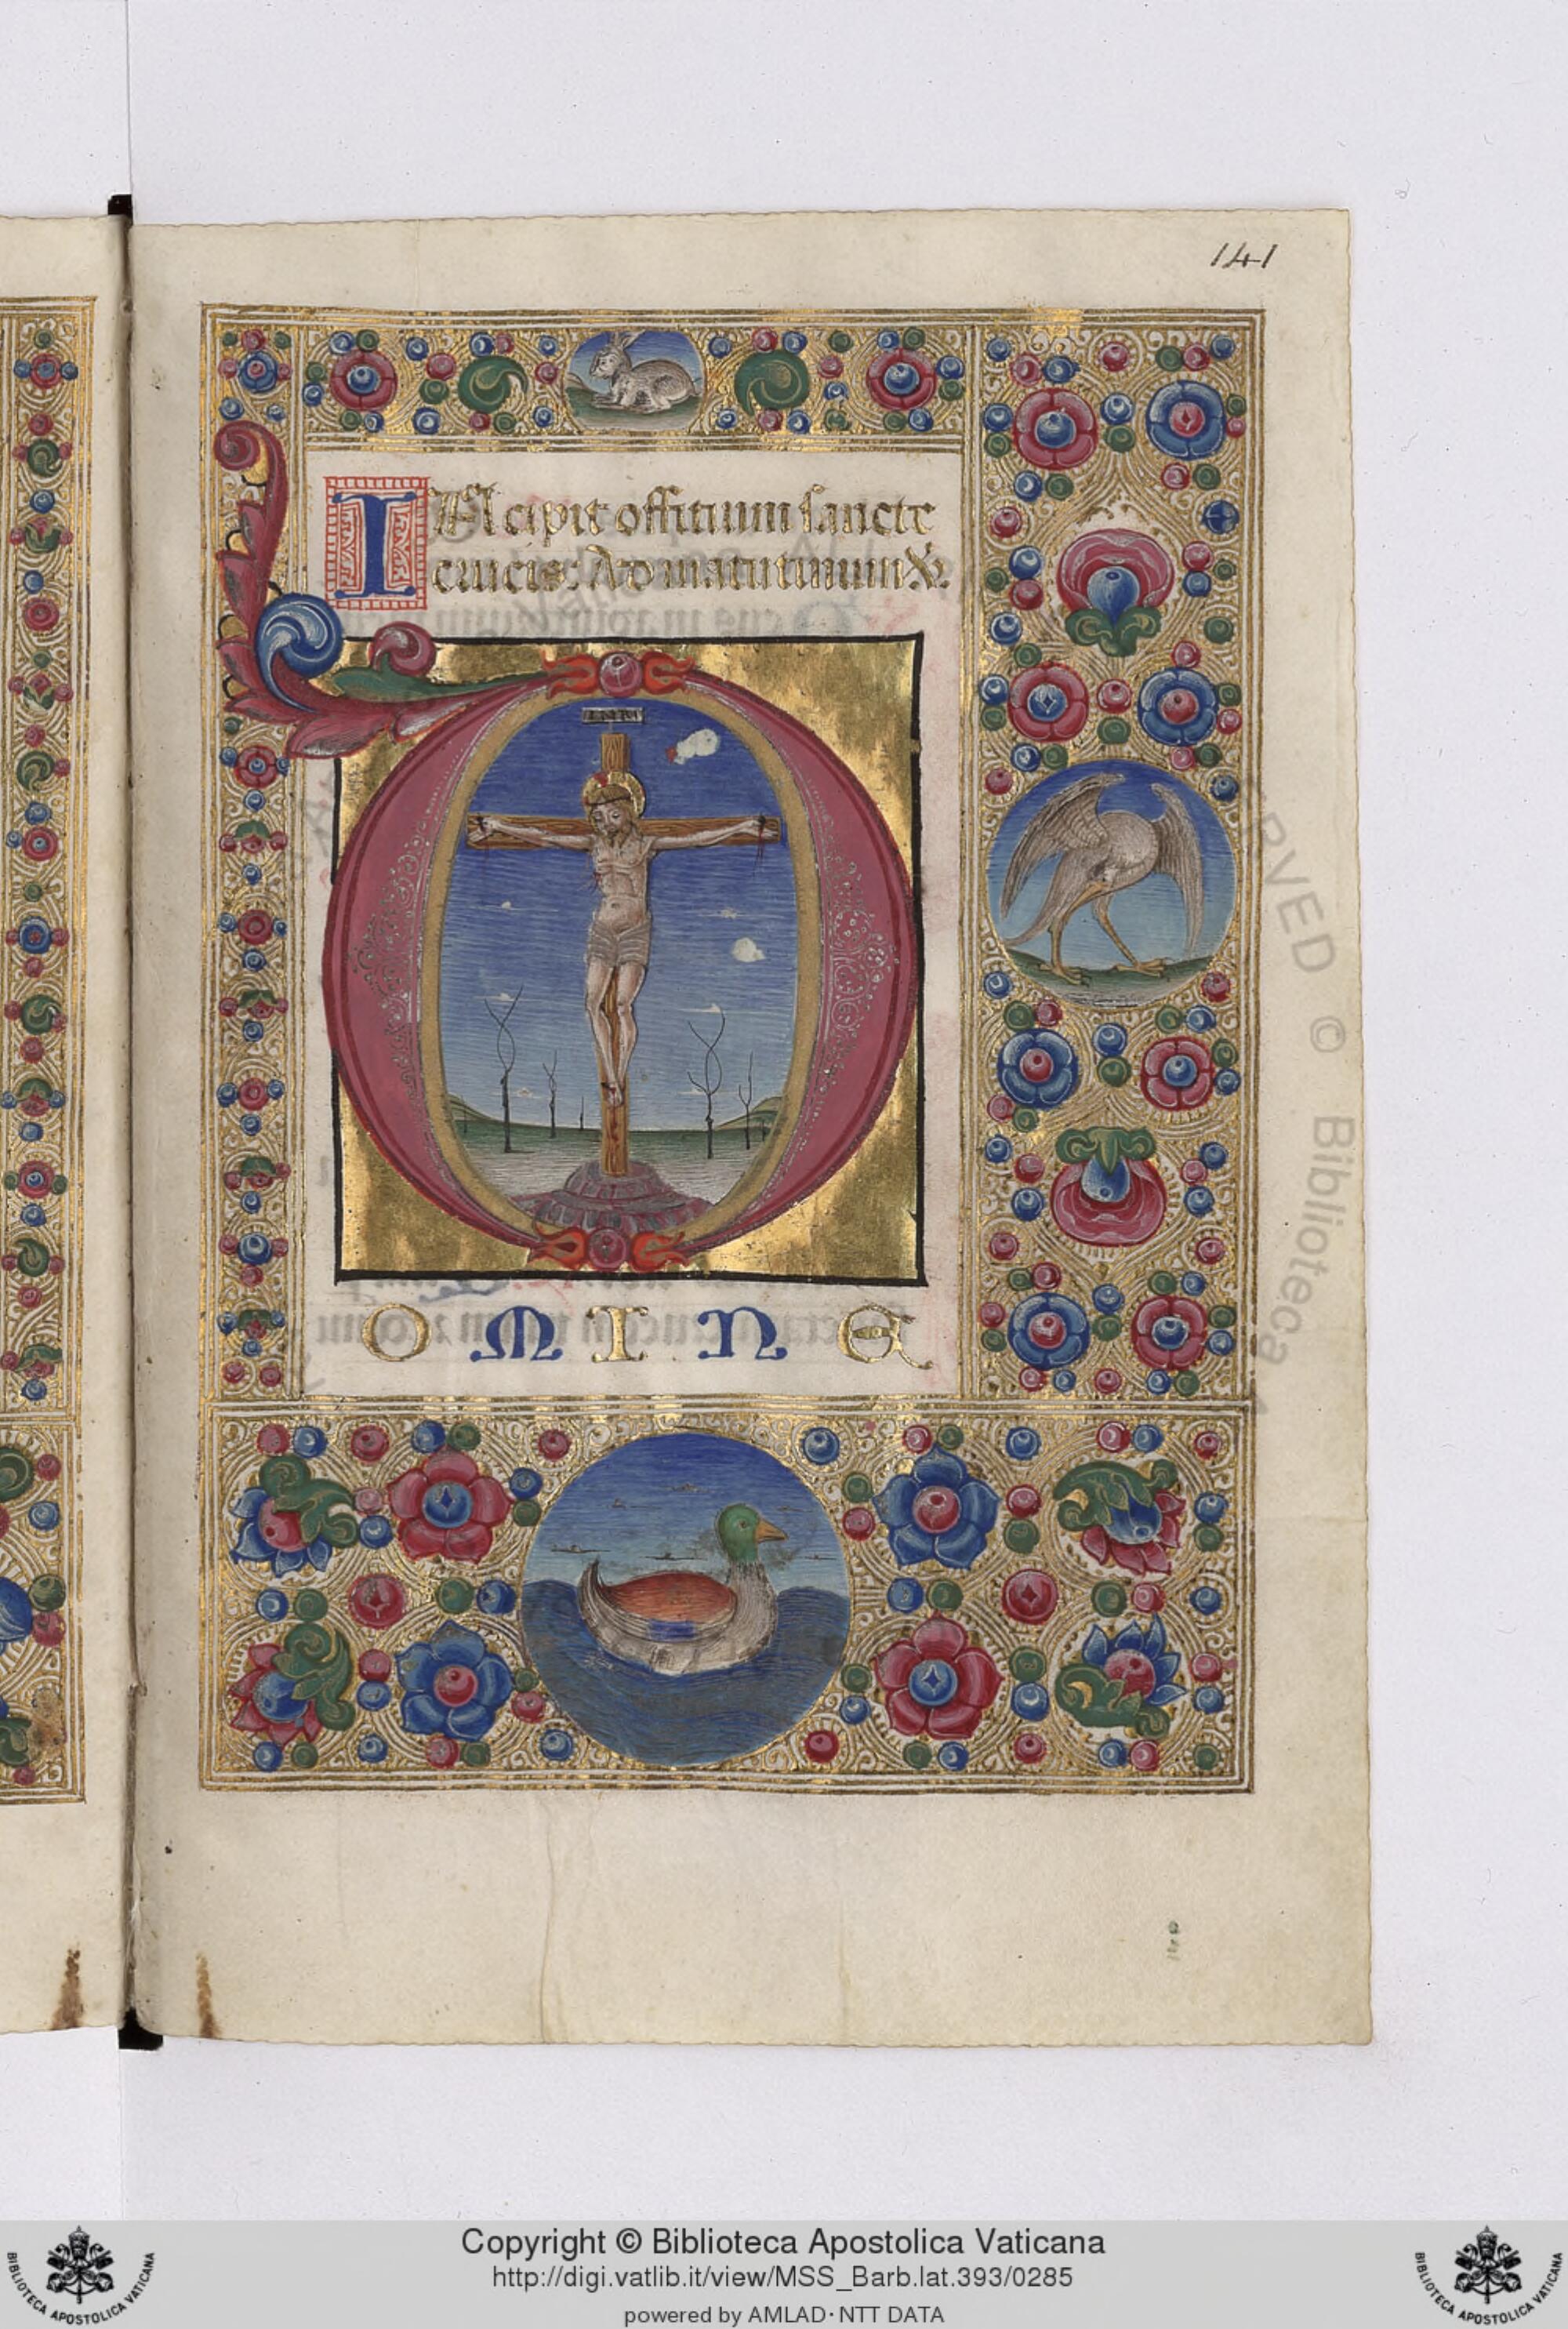 141
INcipit offitium sancte
crucis: Ad matutinum V.
INRI
D
OMINE
RVED © Biblioteca A
Copyright © Biblioteca Apostolica Vaticana
http://digi.vatlib.it/view/MSS_Barb.lat.393/0285
powered by AMLAD·NTT DATA
BIBLIOTECA APOSTOLICA VATICANA
BIBLIOTECA APOSTOLICA VATICANA